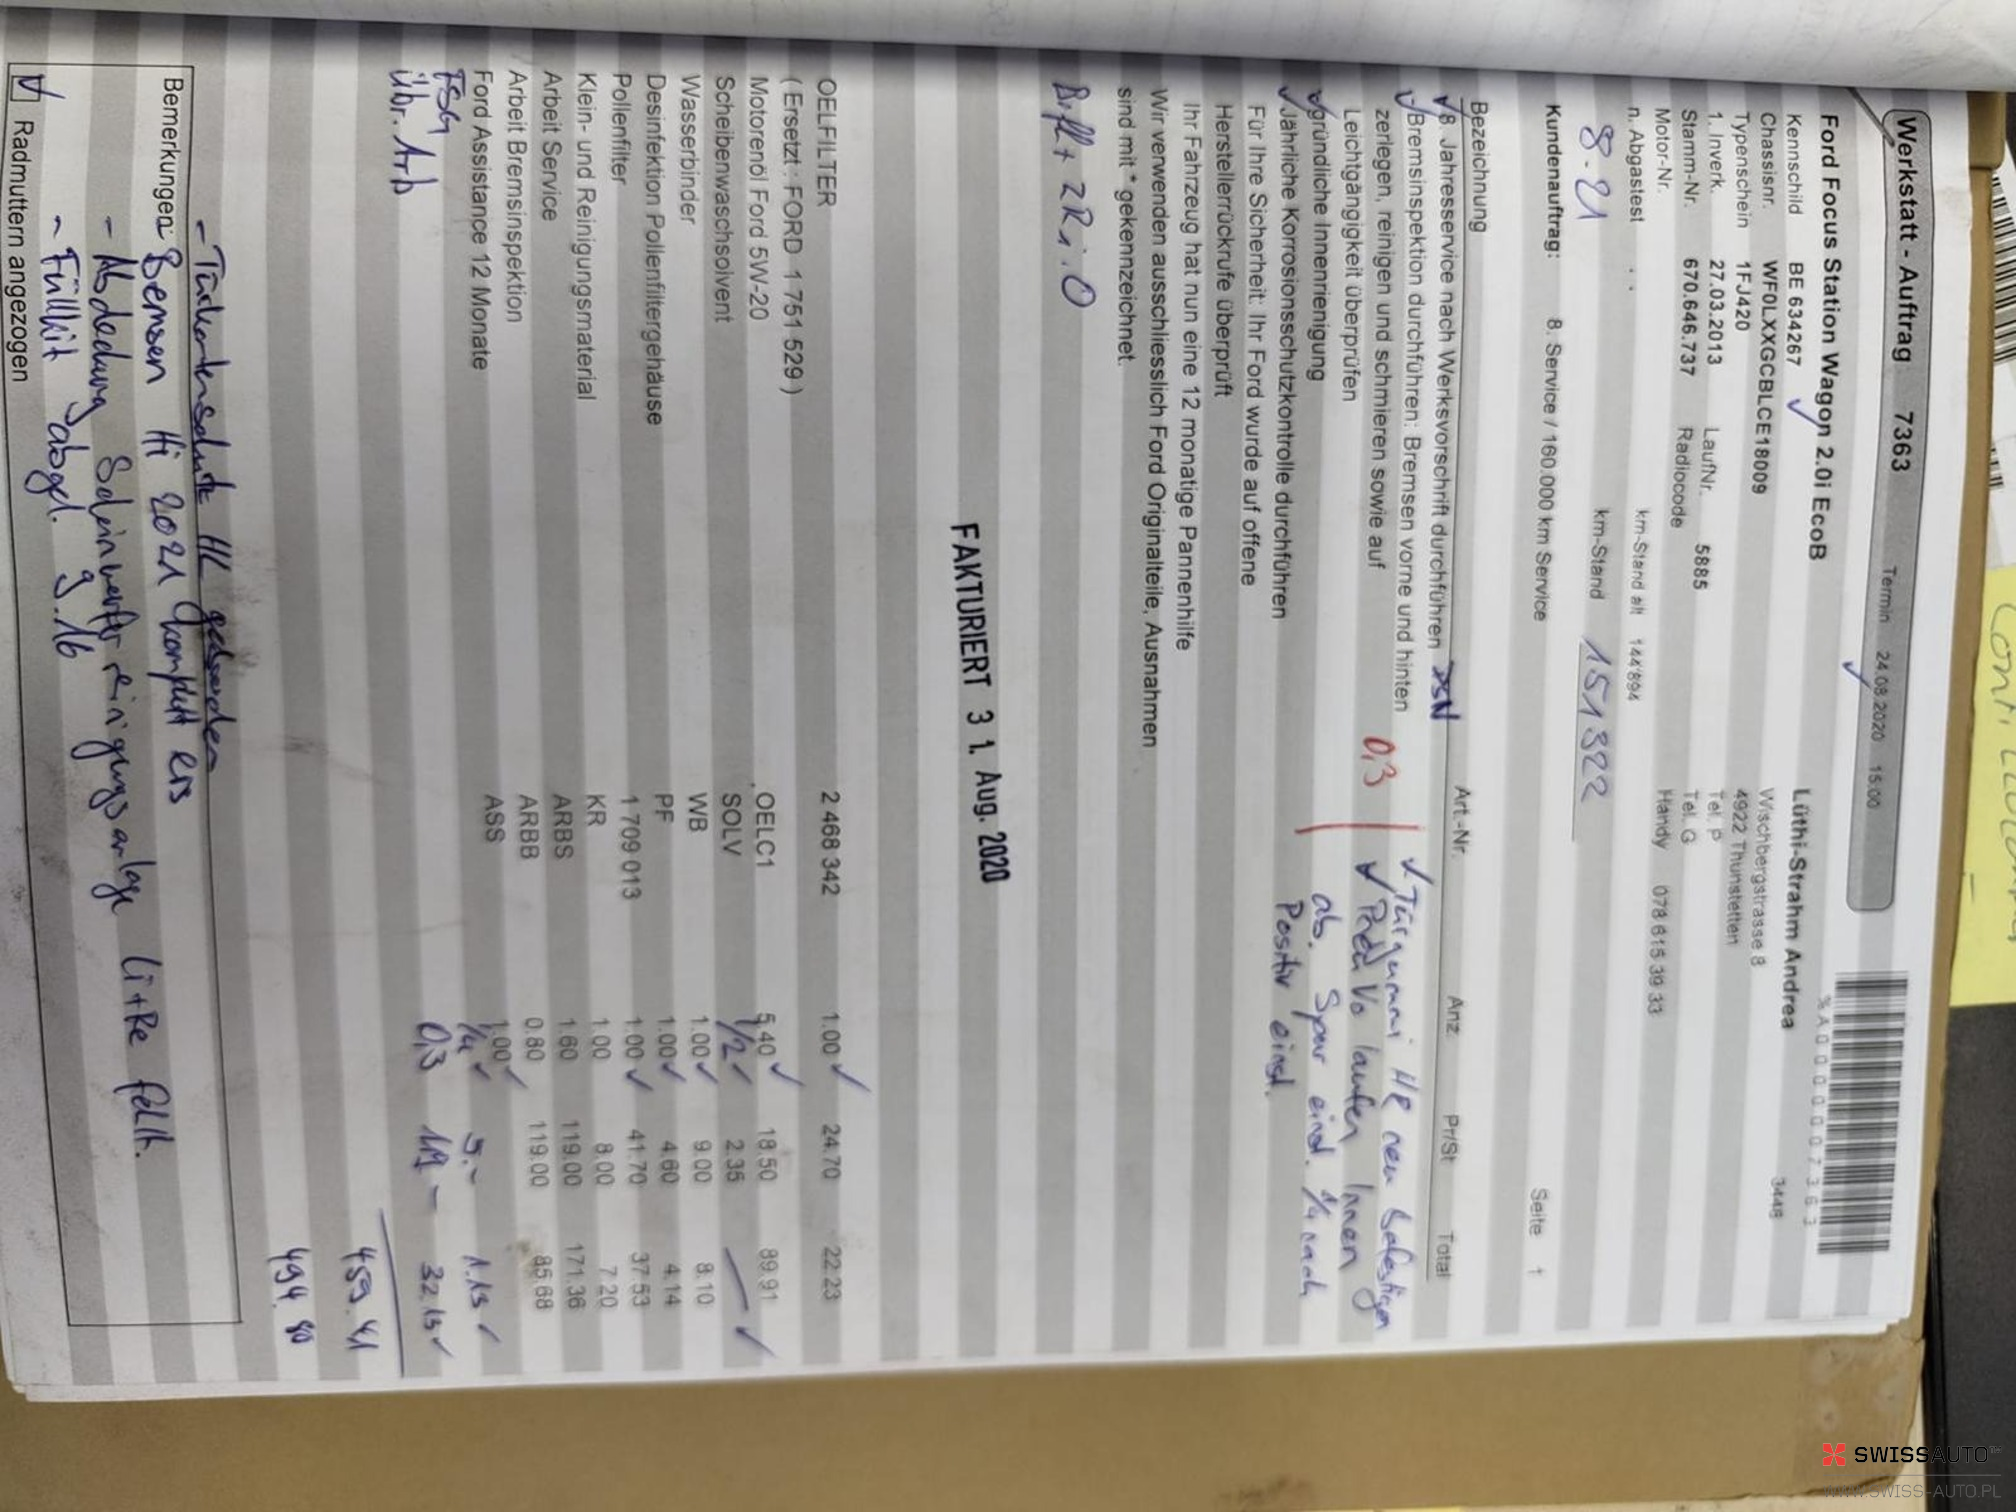 Werkstatt - Auftrag 7363 Termin 24.08.2020 15:00
%A0000007363
Ford Focus Station Wagon 2.0i EcoB
3448
Kennschild BE 634267 Lüthi-Strahm Andrea
Chassisnr. WF0LXXGCBLCE18009 Wischbergstrasse 8
Typenschein 1FJ420 4922 Thunstetten
1. Inverk. 27.03.2013 LaufNr. 5885 Tel. P
Stamm-Nr. 670.646.737 Radiocode Tel. G
Motor-Nr. Handy 078 615 39 33
n. Abgastest . . km-Stand alt 144'894
8.21 km-Stand 151322
Kundenauftrag: 8. Service / 160.000 km Service Seite 1
Bezeichnung Art.-Nr. Anz. Pr/St Total
8. Jahresservice nach Werksvorschrift durchführen
Bremsinspektion durchführen: Bremsen vorne und hinten
zerlegen, reinigen und schmieren sowie auf
Leichtgängigkeit überprüfen
gründliche Innenreinigung
Jährliche Korrosionsschutzkontrolle durchführen
0,3
Türgummi HR neu befestigen
Pneu Vo laufen Innen
ab. Spur einst. 1/4 nach
Positiv einst.
Für Ihre Sicherheit: Ihr Ford wurde auf offene
Herstellerrückrufe überprüft
Ihr Fahrzeug hat nun eine 12 monatige Pannenhilfe
Wir verwenden ausschliesslich Ford Originalteile, Ausnahmen
sind mit * gekennzeichnet.
FAKTURIERT 3 1. Aug. 2020
OELFILTER 2 468 342 1.00 24.70 22.23
( Ersetzt : FORD 1 751 529 )
Motorenöl Ford 5W-20 OELC1 5.40 18.50 89.91
Scheibenwaschsolvent SOLV 1/2 2.35
Wasserbinder WB 1.00 9.00 8.10
Desinfektion Pollenfiltergehäuse PF 1.00 4.60 4.14
Pollenfilter 1 709 013 1.00 41.70 37.53
Klein- und Reinigungsmaterial KR 1.00 8.00 7.20
Arbeit Service ARBS 1.60 119.00 171.36
Arbeit Bremsinspektion ARBB 0.80 119.00 85.68
Ford Assistance 12 Monate ASS 1.00
1/4 5.-
übr. Arb 0,3 119 - 32.13
459.41
494.80
Bemerkungen:
- Bremsen Hi 2021 komplett ers
- Abdeckung Scheinwerferreinigungsanlage links fehlt.
- Füllkit abgel. 9.16
Radmuttern angezogen
SWISSAUTO
WWW.SWISS-AUTO.PL